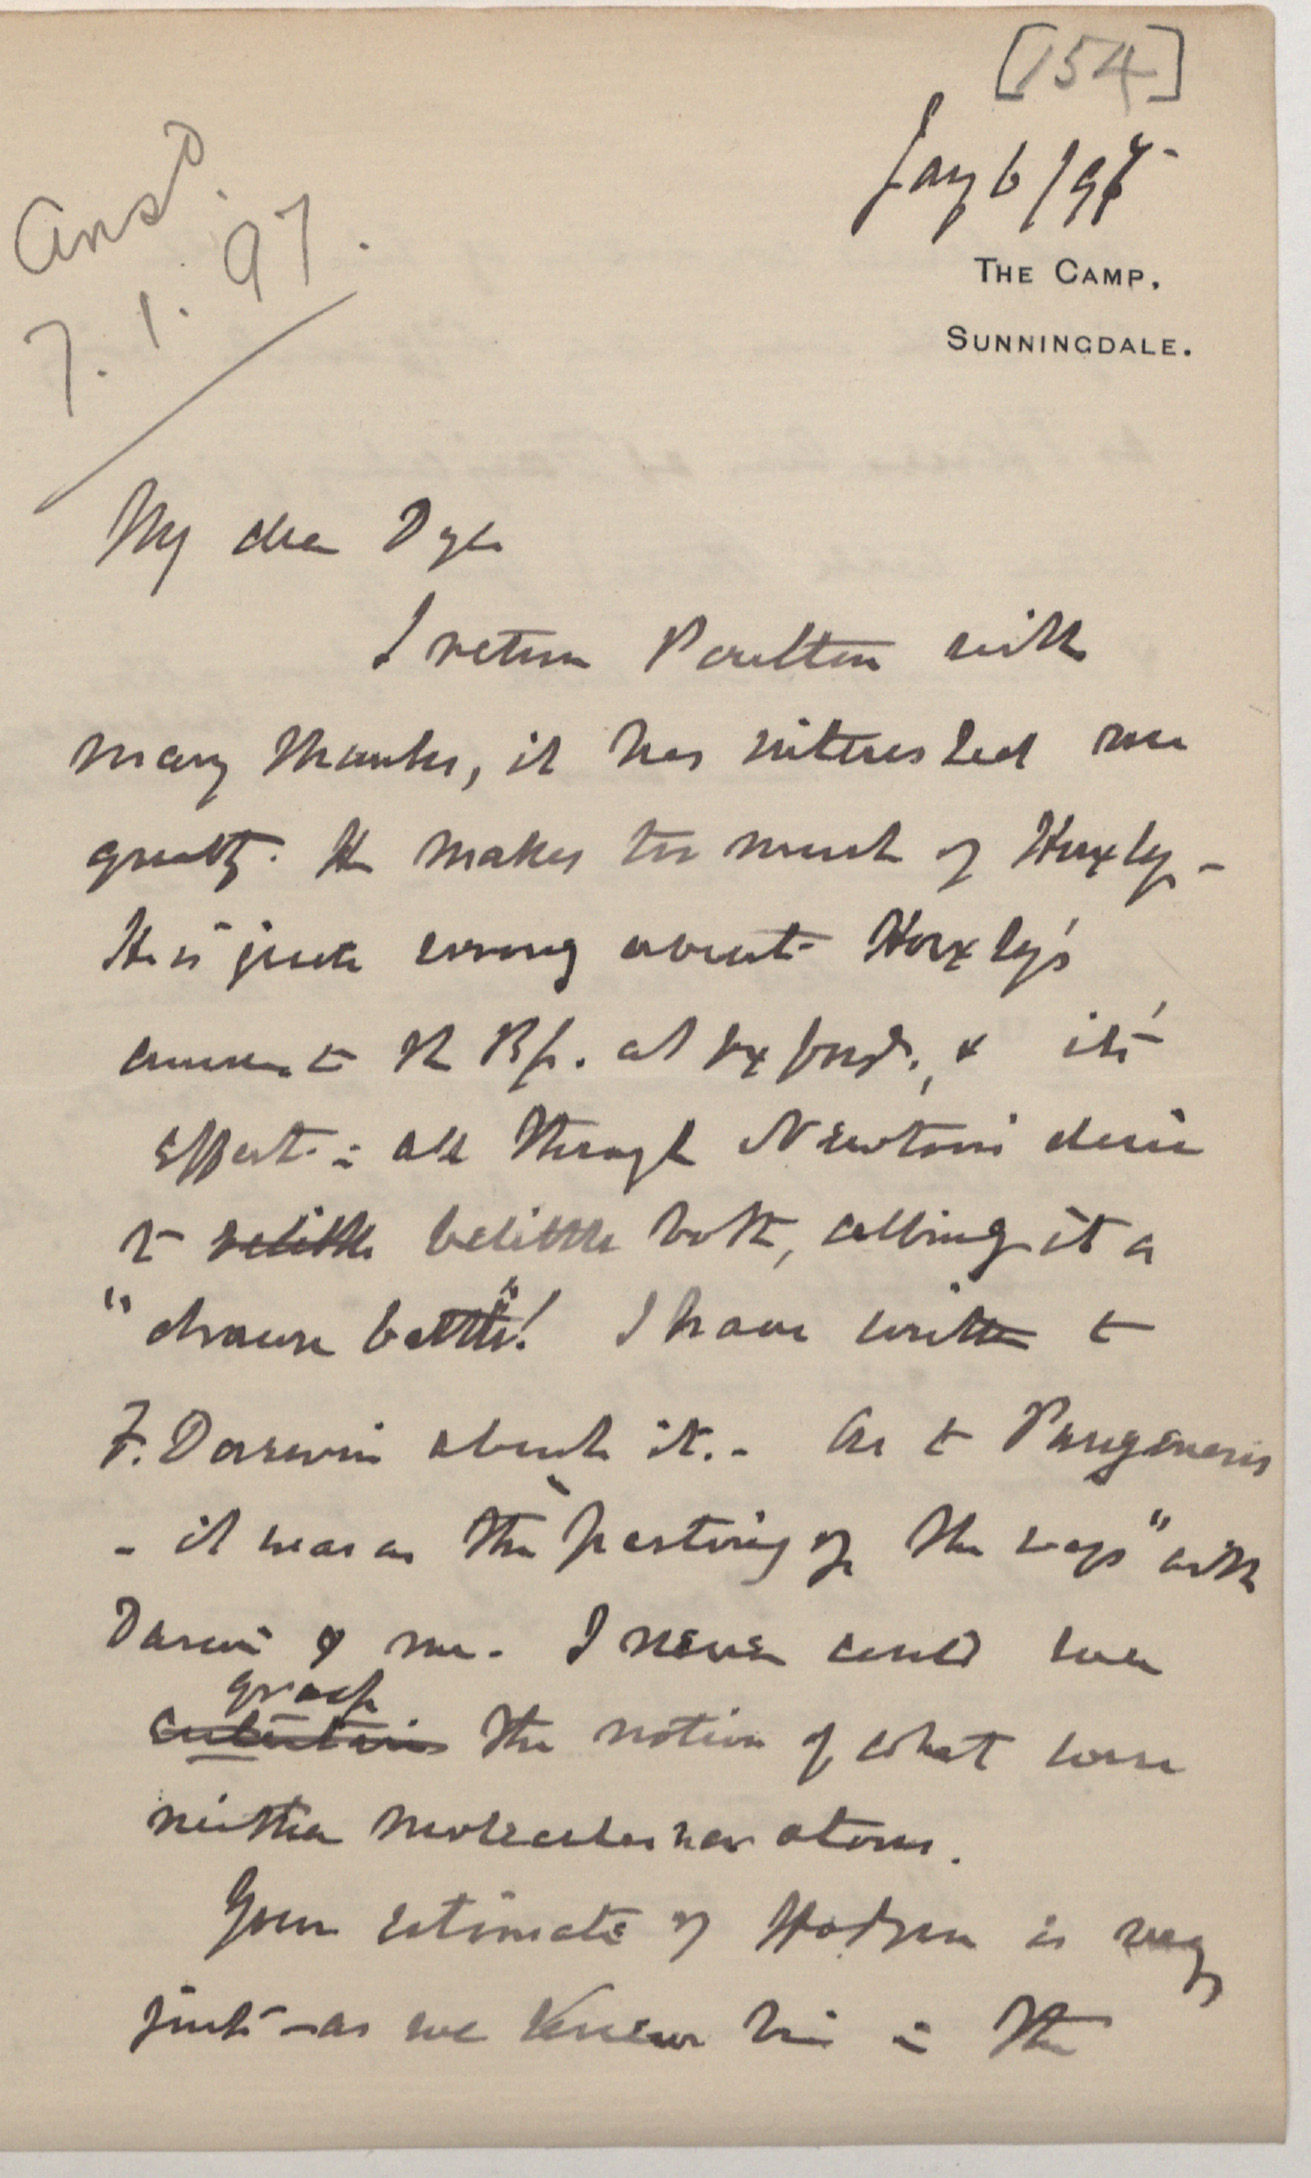 [154]
Jany 6/97
Ansd.
7.1.97.
THE CAMP,
SUNNINGDALE.
My dear Dyer
I return Poulton with
many thanks, it has interested me
greatly. He makes too much of Huxley -
He is quite wrong about Huxley's
answer to the Bp. at Oxford., & its
effect - all through Newton's desire
to belittle belittle both, calling it a
"drawn battle"! I have written to
F. Darwin about it. - As to Pangenesis
- it was as the "parting of the ways" with
Darwin & me. I never could even
grasp
entertain the notion of what were
neither molecules nor atoms.
Your estimate of Hodgson is very
just - as we knew him in the